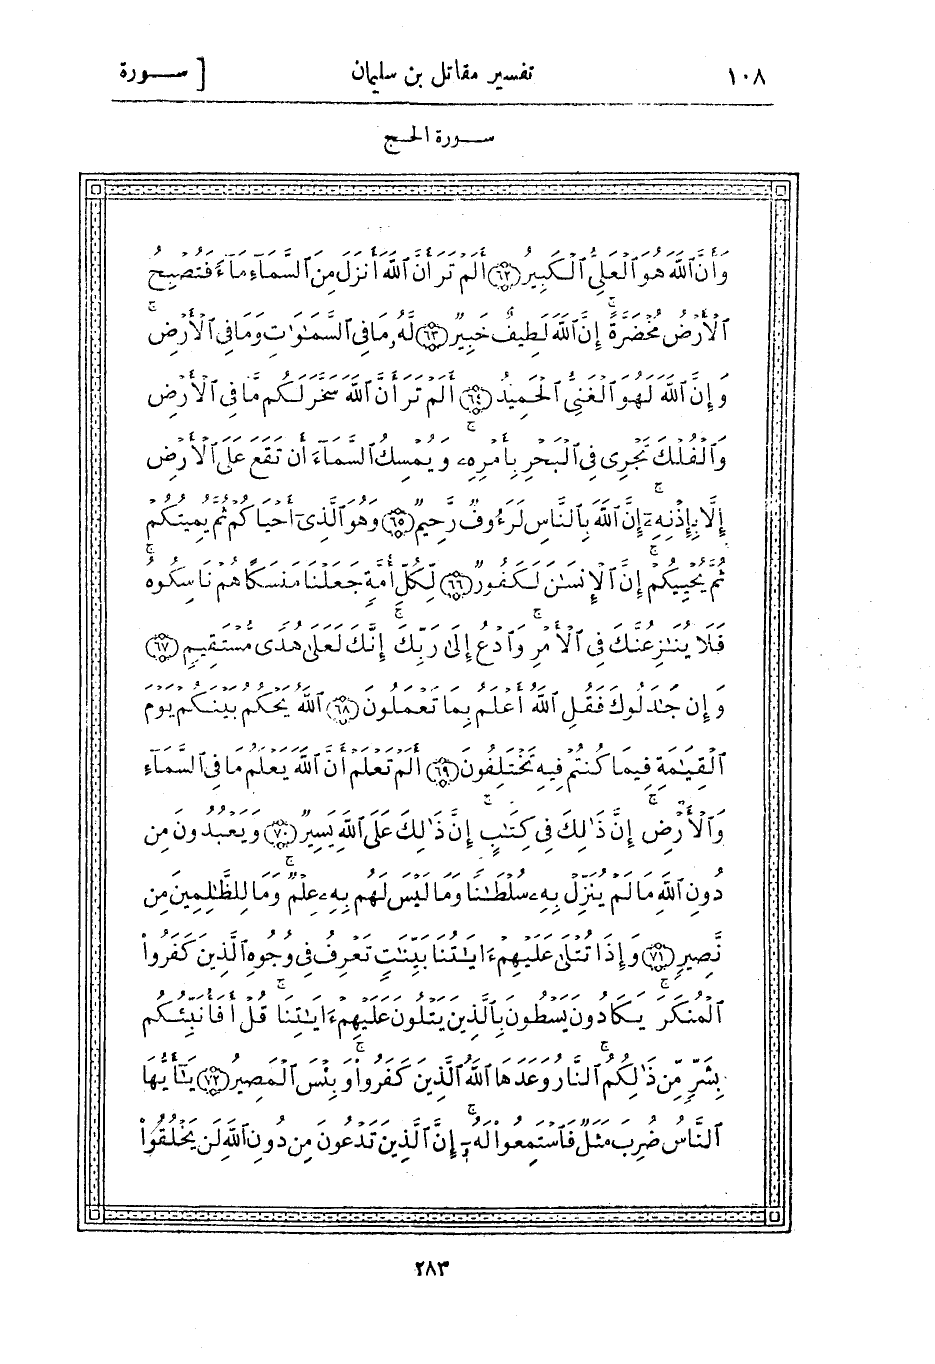 ١٠٨ تفسير مقاتل بن سليمان [ ســـورة
ســـورة الحـــج
وَأَنَّ ٱللَّهَ هُوَ ٱلْعَلِىُّ ٱلْكَبِيرُ ﴿٦٢﴾ أَلَمْ تَرَ أَنَّ ٱللَّهَ أَنزَلَ مِنَ ٱلسَّمَآءِ مَآءً فَتُصْبِحُ
ٱلْأَرْضُ مُخْضَرَّةً ۚ إِنَّ ٱللَّهَ لَطِيفٌ خَبِيرٌ ﴿٦٣﴾ لَّهُۥ مَا فِى ٱلسَّمَـٰوَٰتِ وَمَا فِى ٱلْأَرْضِ ۚ
وَإِنَّ ٱللَّهَ لَهُوَ ٱلْغَنِىُّ ٱلْحَمِيدُ ﴿٦٤﴾ أَلَمْ تَرَ أَنَّ ٱللَّهَ سَخَّرَ لَكُم مَّا فِى ٱلْأَرْضِ
وَٱلْفُلْكَ تَجْرِى فِى ٱلْبَحْرِ بِأَمْرِهِۦ وَيُمْسِكُ ٱلسَّمَآءَ أَن تَقَعَ عَلَى ٱلْأَرْضِ
إِلَّا بِإِذْنِهِۦٓ ۚ إِنَّ ٱللَّهَ بِٱلنَّاسِ لَرَءُوفٌ رَّحِيمٌ ﴿٦٥﴾ وَهُوَ ٱلَّذِىٓ أَحْيَاكُمْ ثُمَّ يُمِيتُكُمْ
ثُمَّ يُحْيِيكُمْ ۗ إِنَّ ٱلْإِنسَـٰنَ لَكَفُورٌ ﴿٦٦﴾ لِّكُلِّ أُمَّةٍ جَعَلْنَا مَنسَكًا هُمْ نَاسِكُوهُ ۖ
فَلَا يُنَـٰزِعُنَّكَ فِى ٱلْأَمْرِ ۚ وَٱدْعُ إِلَىٰ رَبِّكَ ۖ إِنَّكَ لَعَلَىٰ هُدًى مُّسْتَقِيمٍ ﴿٦٧﴾
وَإِن جَـٰدَلُوكَ فَقُلِ ٱللَّهُ أَعْلَمُ بِمَا تَعْمَلُونَ ﴿٦٨﴾ ٱللَّهُ يَحْكُمُ بَيْنَكُمْ يَوْمَ
ٱلْقِيَـٰمَةِ فِيمَا كُنتُمْ فِيهِ تَخْتَلِفُونَ ﴿٦٩﴾ أَلَمْ تَعْلَمْ أَنَّ ٱللَّهَ يَعْلَمُ مَا فِى ٱلسَّمَآءِ
وَٱلْأَرْضِ ۗ إِنَّ ذَٰلِكَ فِى كِتَـٰبٍ ۚ إِنَّ ذَٰلِكَ عَلَى ٱللَّهِ يَسِيرٌ ﴿٧٠﴾ وَيَعْبُدُونَ مِن
دُونِ ٱللَّهِ مَا لَمْ يُنَزِّلْ بِهِۦ سُلْطَـٰنًا وَمَا لَيْسَ لَهُم بِهِۦ عِلْمٌ ۗ وَمَا لِلظَّـٰلِمِينَ مِن
نَّصِيرٍ ﴿٧١﴾ وَإِذَا تُتْلَىٰ عَلَيْهِمْ ءَايَـٰتُنَا بَيِّنَـٰتٍ تَعْرِفُ فِى وُجُوهِ ٱلَّذِينَ كَفَرُوا۟
ٱلْمُنكَرَ ۖ يَكَادُونَ يَسْطُونَ بِٱلَّذِينَ يَتْلُونَ عَلَيْهِمْ ءَايَـٰتِنَا ۗ قُلْ أَفَأُنَبِّئُكُم
بِشَرٍّ مِّن ذَٰلِكُمُ ۗ ٱلنَّارُ وَعَدَهَا ٱللَّهُ ٱلَّذِينَ كَفَرُوا۟ ۖ وَبِئْسَ ٱلْمَصِيرُ ﴿٧٢﴾ يَـٰٓأَيُّهَا
ٱلنَّاسُ ضُرِبَ مَثَلٌ فَٱسْتَمِعُوا۟ لَهُۥٓ ۚ إِنَّ ٱلَّذِينَ تَدْعُونَ مِن دُونِ ٱللَّهِ لَن يَخْلُقُوا۟
٢٨٣